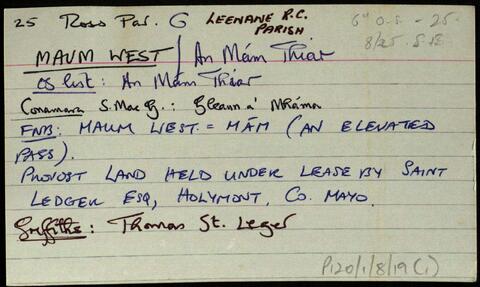 25 Ross Par. G LEENANE R.C. PARISH
6" O.S. - 25.
8/25. S.B.
MAUM WEST / An Mám Thiar
OS list: An Mám Thiar
Conamara S. Mac G.: Gleann a' Mháma
FNB: MAUM WEST. = MÁM (AN ELEVATED
PASS).
PROVOST LAND HELD UNDER LEASE BY SAINT
LEDGER ESQ, HOLYMONT, CO. MAYO.
Griffiths: Thomas St. Leger
P120/1/8/19 (i)